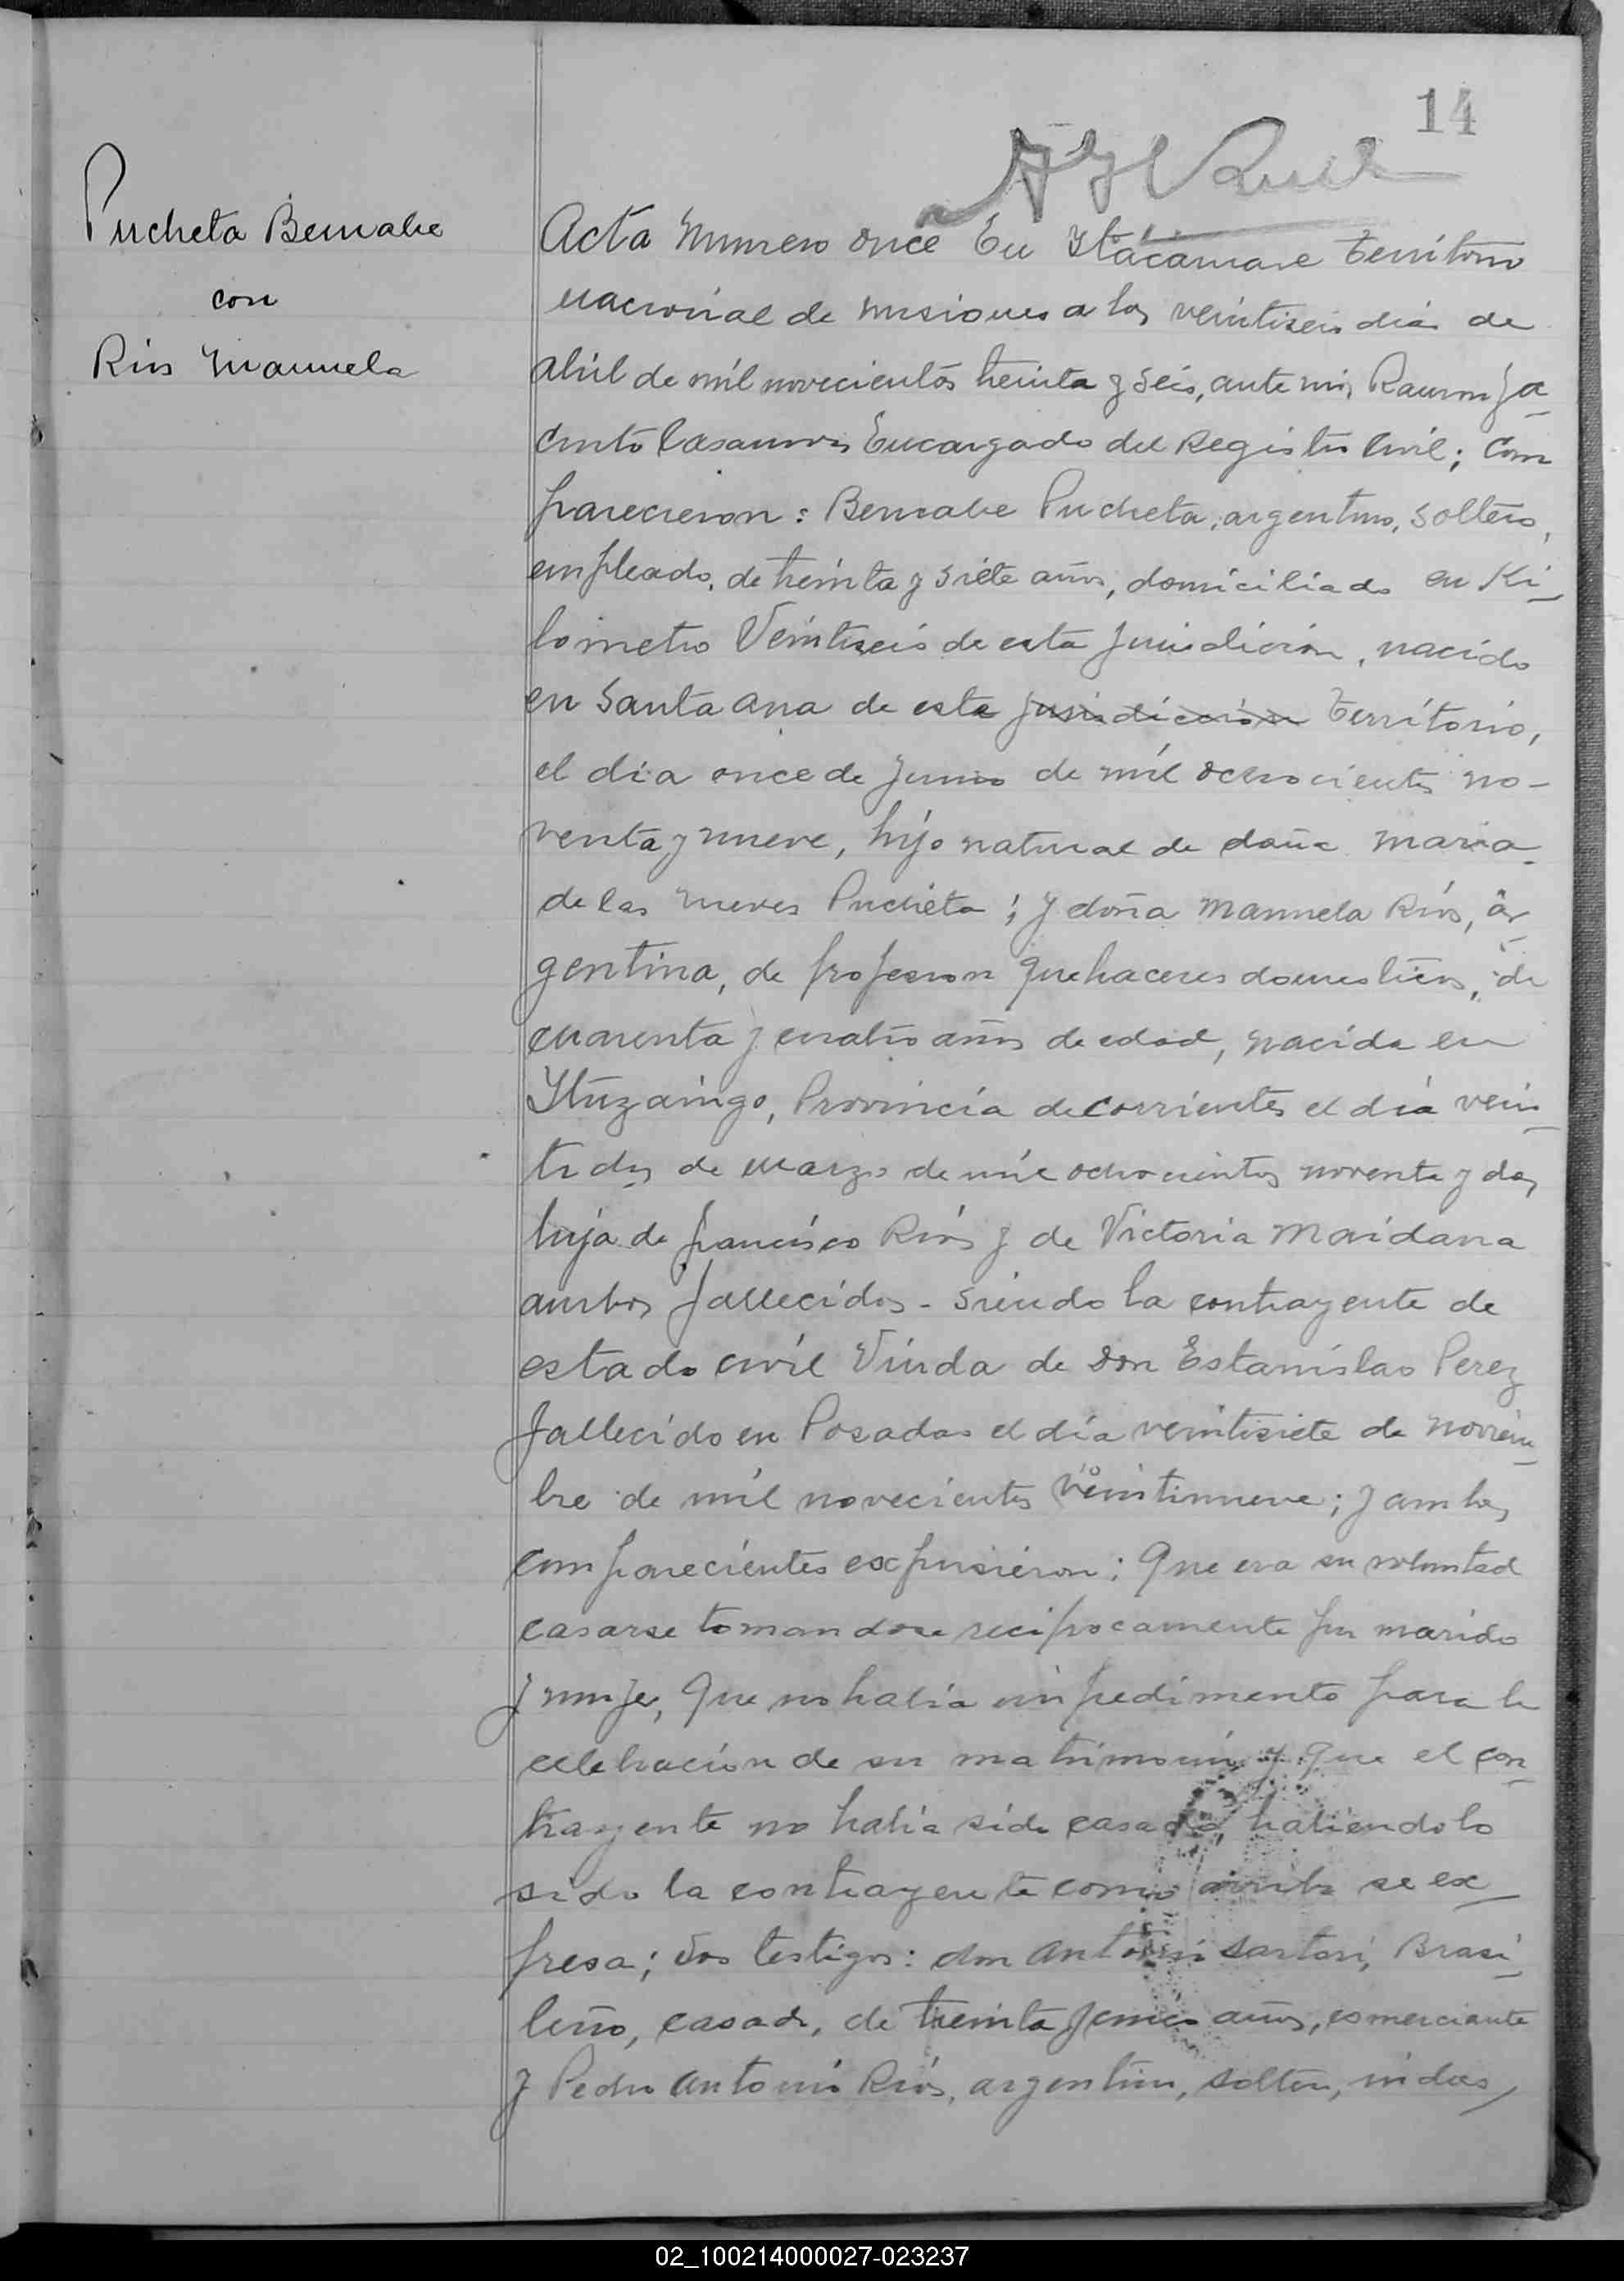 14
Pucheta Bernabe
con
Rios Manuela
Acta Numero once En Itacaruare territorio
nacional de misiones a los veintiseis dias de
abril de mil novecientos treinta y seis, ante mi, Ramon Ja-
cinto Casanova Encargado del Registro Civil; Com
parecieron: Bernabe Pucheta, argentino, soltero,
empleado, de treinta y siete años, domiciliado en Ki-
lometro Veintiseis de esta Jurisdicion, nacido
en Santa Ana de este jurisdiccion territorio,
el día once de Junio de mil ochocientos no-
venta y nueve, hijo natural de doña Maria
de las Nieves Pucheta; y doña Manuela Rios, ar-
gentina, de profesion Quehaceres domesticos, de
cuarenta y cuatro años de edad, nacida en
Ytuzaingo, Provincia de Corrientes el día vein-
tidos de Marzo de mil ochocientos noventa y dos,
hija de Francisco Rios y de Victoria Maidana
ambos fallecidos - Siendo la contrayente de
estado civil Viuda de don Estanislao Perez
fallecido en Posadas el día veintisiete de noviem-
bre de mil novecientos veintinueve; y ambos
comparecientes expusieron: Que era su voluntad
casarse tomandose reciprocamente por marido
y mujer, Que no habia impedimento para la
celebracion de su matrimonio y que el con-
trayente no habia sido casado, habiendolo
sido la contrayente como arriba se ex-
presa; Los testigos: don Antonio Sartori, Brasi-
leño, casado, de treinta y cinco años, comerciante
y Pedro Antonio Rios, argentino, soltero,
02_100214000027-023237